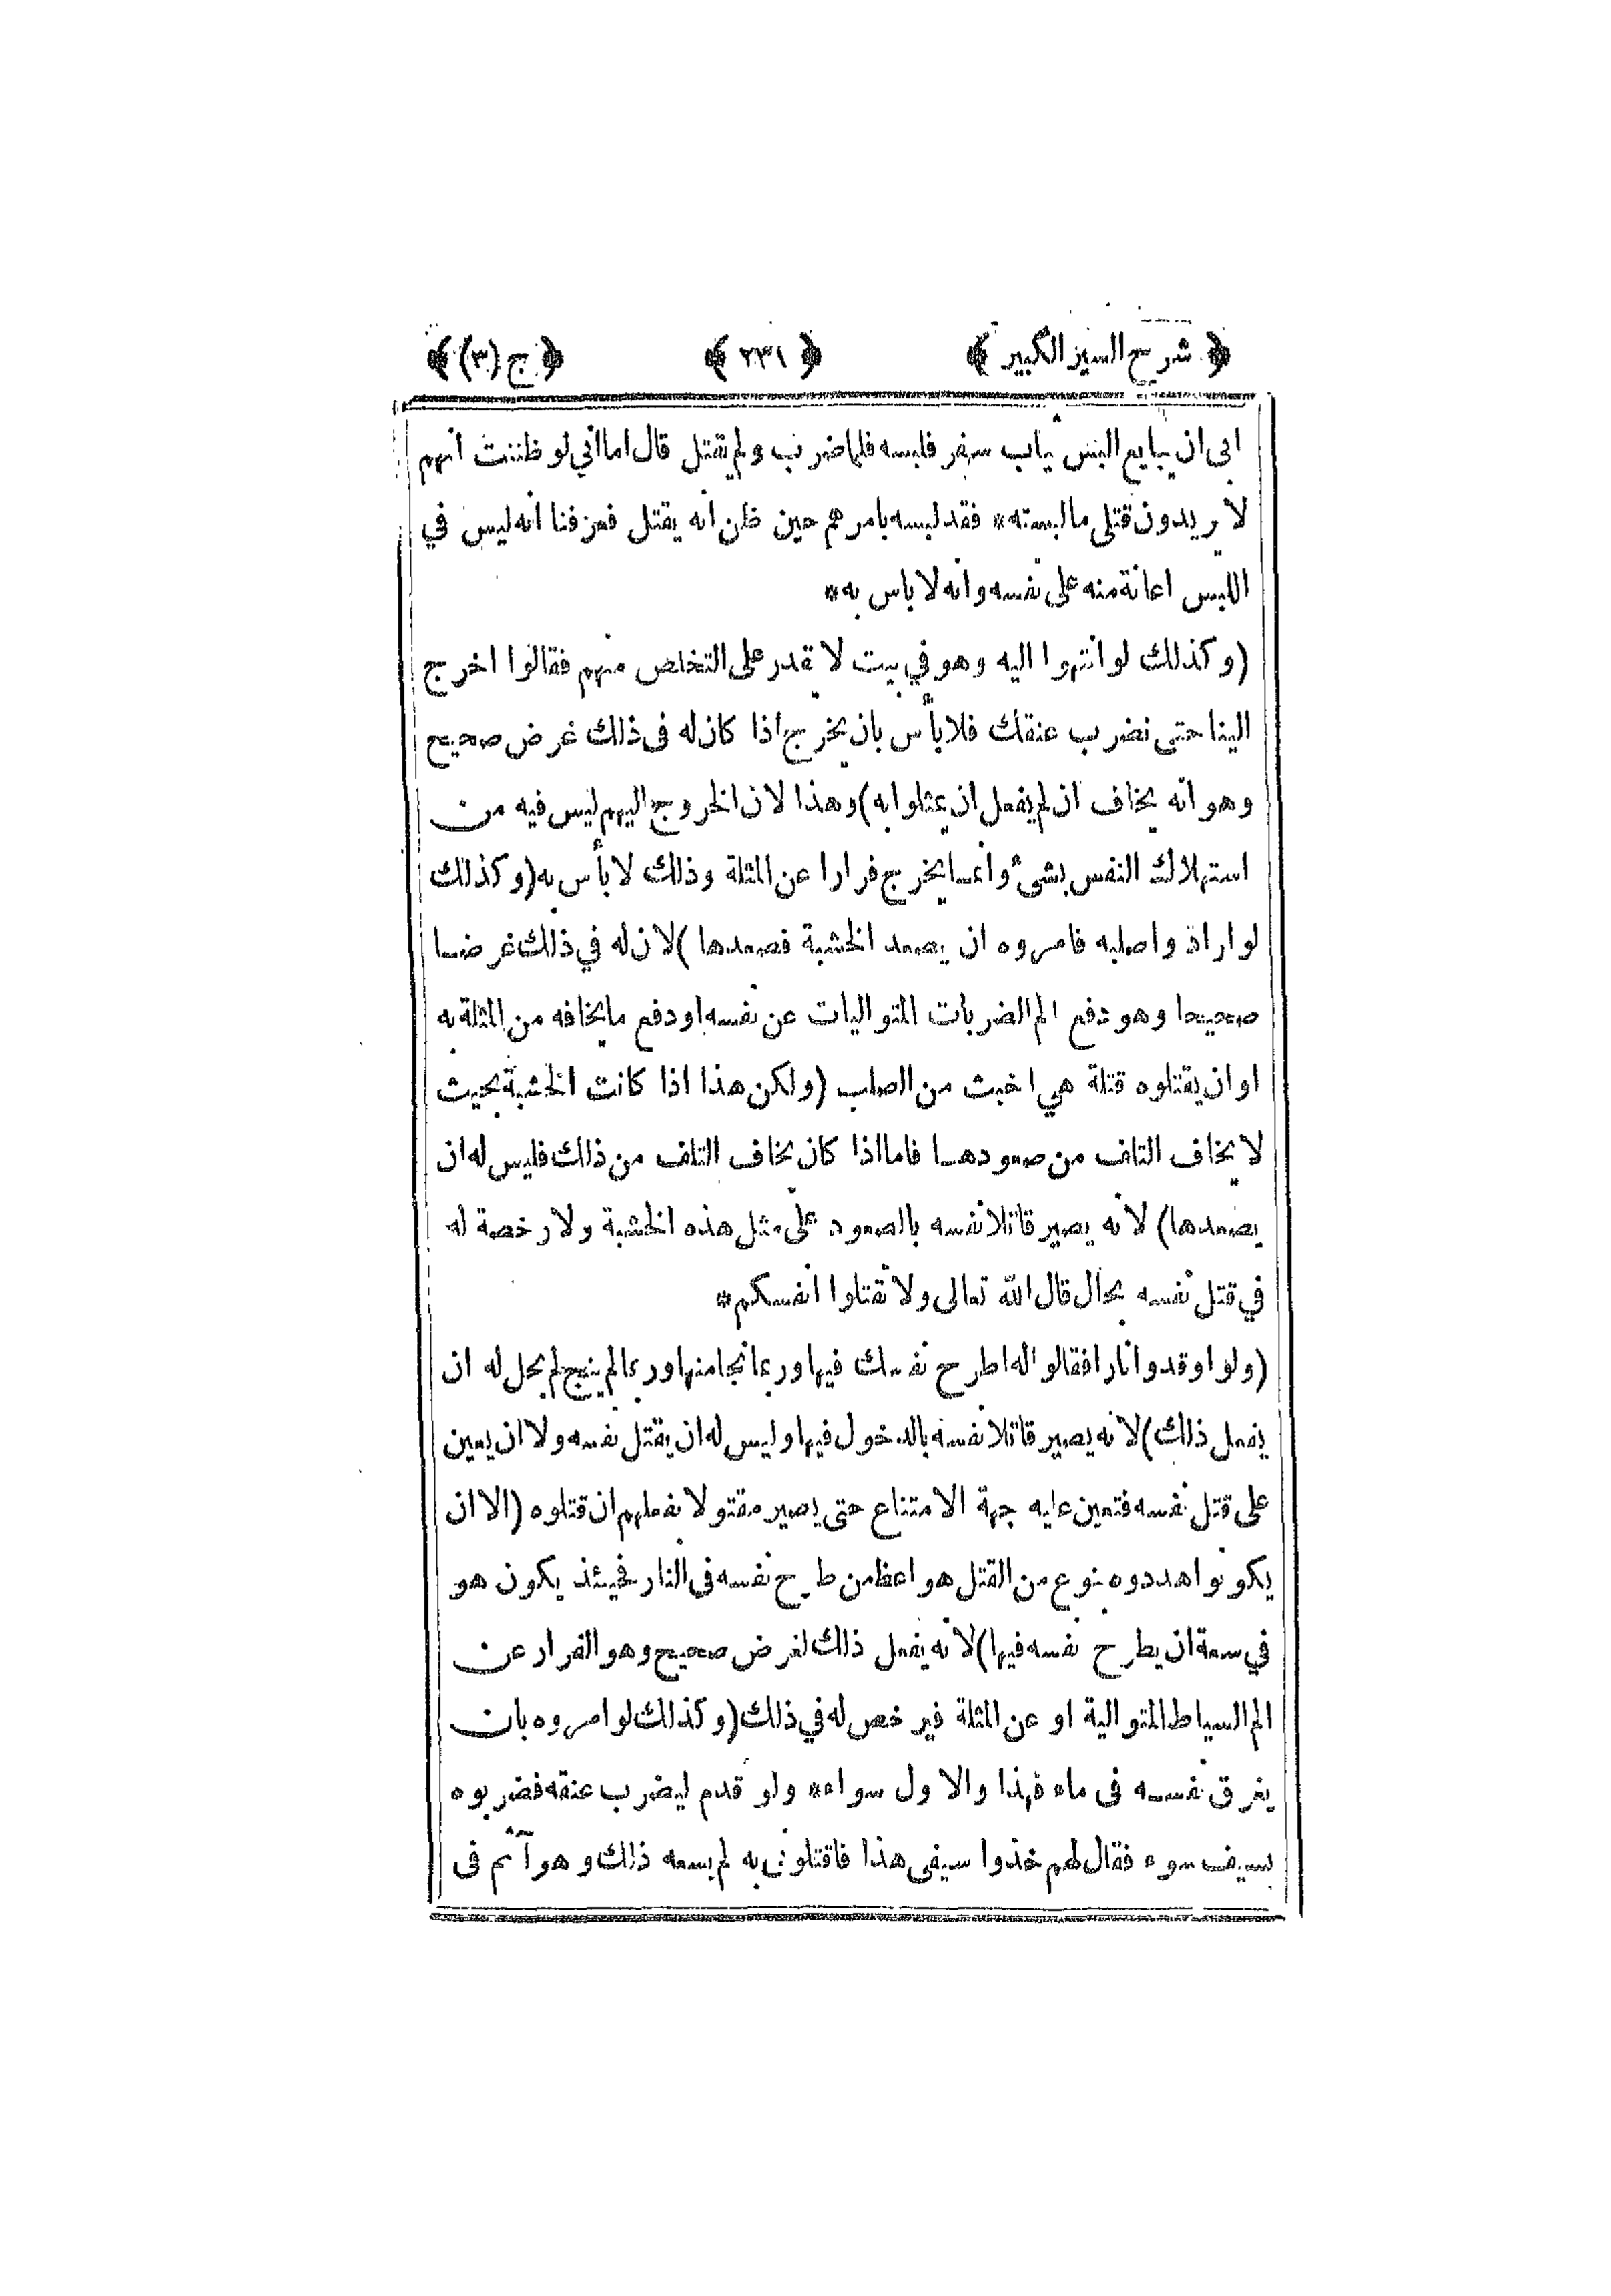 ﴿ شرح السير الكبير ﴾ ﴿ ٢٣١ ﴾ ﴿ ج (٣) ﴾
ابى ان يبايع البس ثياب سفر فلبسه فلما ضرب ولم يقتل قال اما انى لو ظننت انهم
لا يريدون قتلى ما لبسته * فقد لبسه بامرهم حين ظن انه يقتل فعرفنا انه ليس في
اللبس اعانة منه على نفسه وانه لا باس به *
(وكذلك لو انتهوا اليه وهو في بيت لا يقدر على التخلص منهم فقالوا اخرج
الينا حتى نضرب عنقك فلا بأس بان يخرج اذا كان له فى ذلك غرض صحيح
وهو انه يخاف ان لم يفعل ان يمثلوا به) وهذا لان الخروج اليهم ليس فيه من
استهلاك النفس بشىء وانما يخرج فرارا عن المثلة وذلك لا بأس به (وكذلك
لو ارادوا صلبه فامروه ان يصعد الخشبة فصعدها) لان له في ذلك غرضا
صحيحا وهو دفع الم الضربات المتواليات عن نفسه او دفع ما يخافه من المثلة به
او ان يقتلوه قتلة هي اخبث من الصلب (ولكن هذا اذا كانت الخشبة بحيث
لا يخاف التلف من صعودها فاما اذا كان يخاف التلف من ذلك فليس له ان
يصعدها) لانه يصير قاتلا نفسه بالصعود على مثل هذه الخشبة ولا رخصة له
في قتل نفسه بحال قال الله تعالى ولا تقتلوا انفسكم *
(ولو اوقدوا نارا فقالوا له اطرح نفسك فيها وربما نجا منها وربما لم ينج لم يحل له ان
يفعل ذلك) لانه يصير قاتلا نفسه بالدخول فيها وليس له ان يقتل نفسه ولا ان يعين
على قتل نفسه فتعين عليه جهة الامتناع حتى يصير مقتولا بفعلهم ان قتلوه (الا ان
يكونوا هددوه بنوع من القتل هو اعظم من طرح نفسه فى النار فحينئذ يكون هو
في سعة ان يطرح نفسه فيها) لانه يفعل ذلك لغرض صحيح وهو الفرار عن
الم السياط المتوالية او عن المثلة فيرخص له في ذلك (وكذلك لو امروه بان
يغرق نفسه فى ماء فهذا والاول سواء * ولو قدم ليضرب عنقه فضربوه
بسيف سوء فقال لهم خذوا سيفى هذا فاقتلونى به لم يسعه ذلك وهو آثم فى